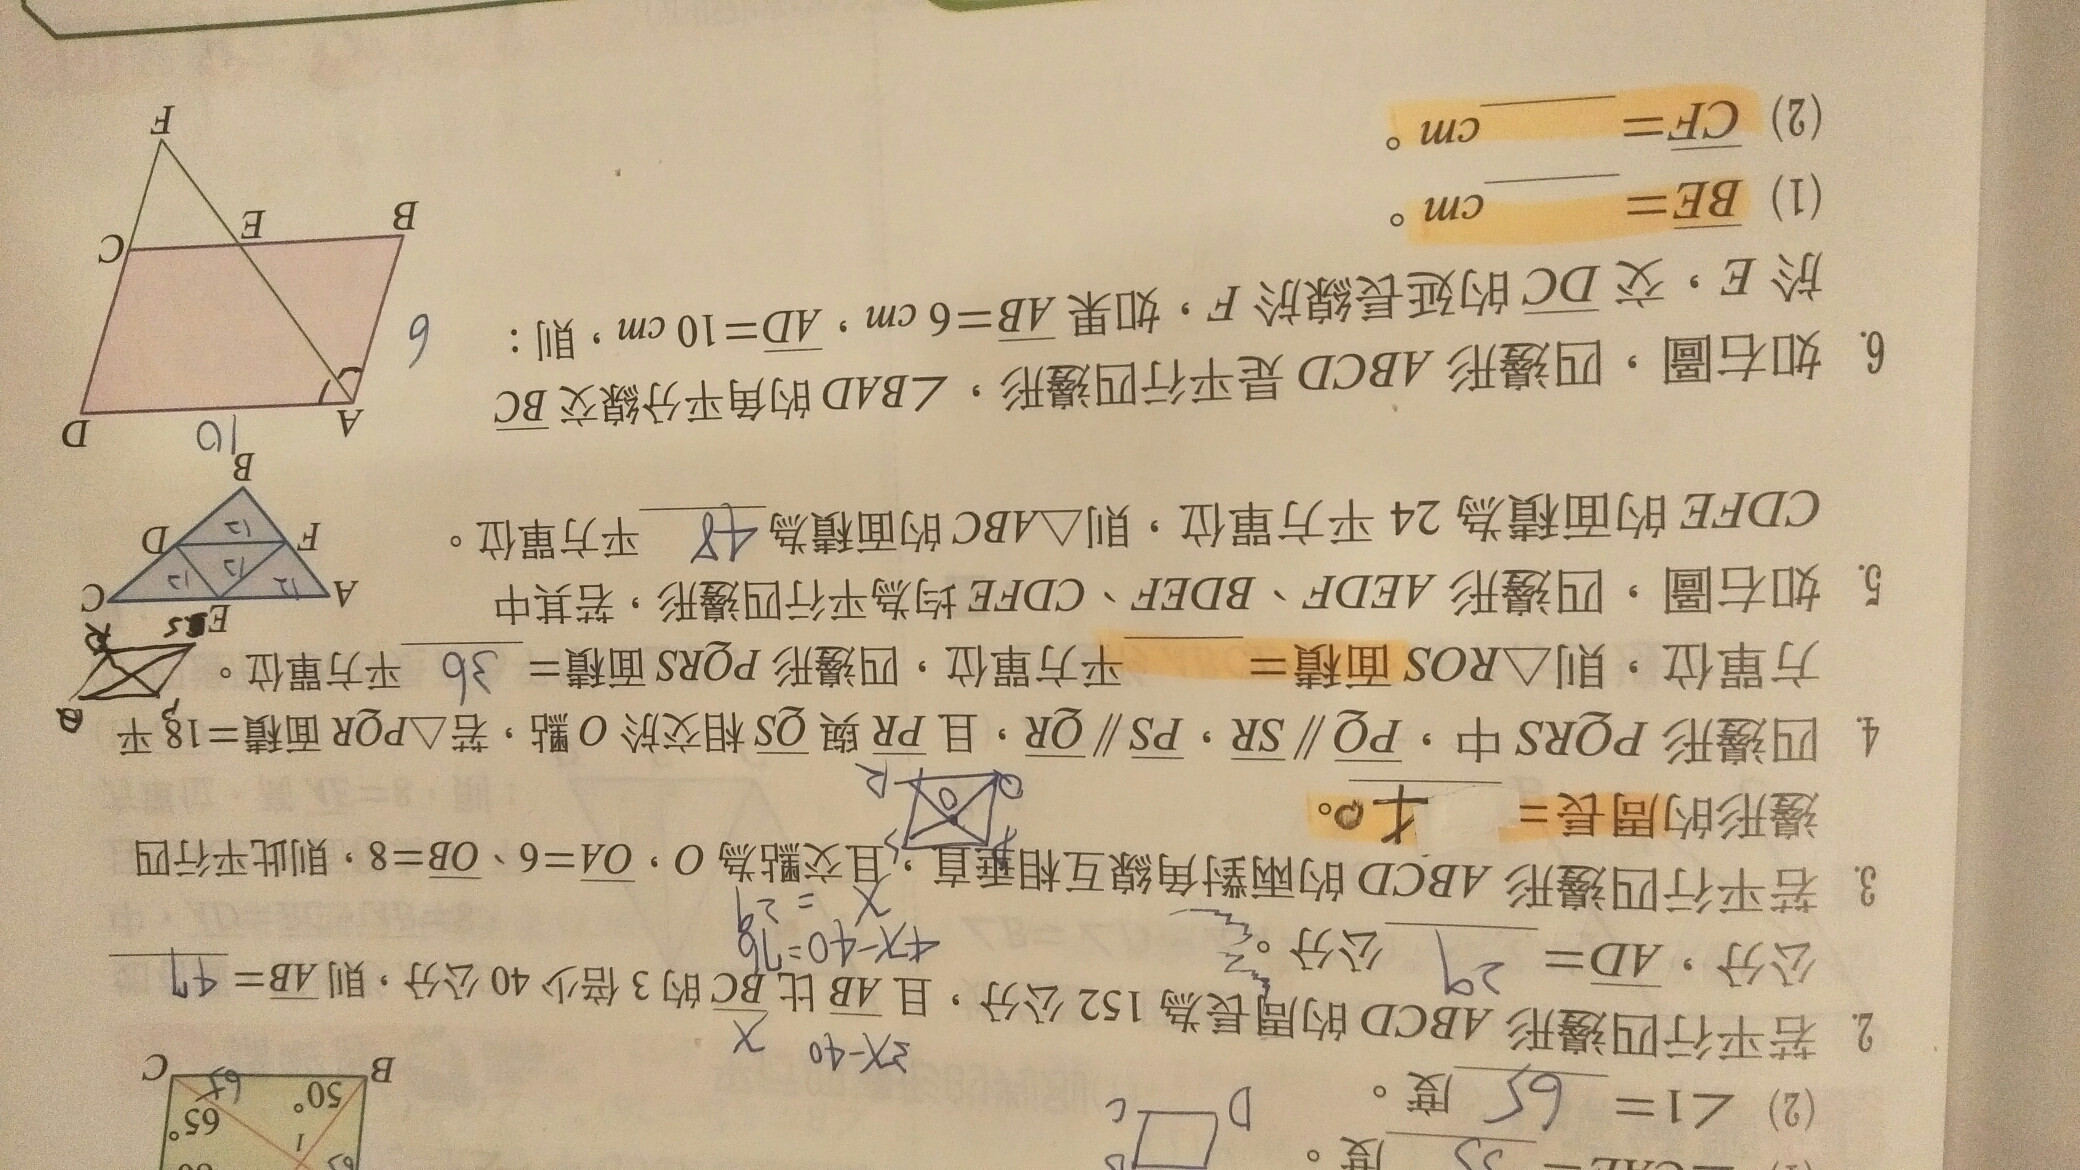 (1) ∠CAE= 55 度。
(2) ∠1= 65 度。
1
50°
65°
65
B
C
B
C
D
3x-40
x
2. 若平行四邊形 ABCD 的周長為 152 公分，且 AB 比 BC 的 3 倍少 40 公分，則 AB= 47
公分，AD= 29 公分。
4x-40=76
x = 29
3. 若平行四邊形 ABCD 的兩對角線互相垂直，且交點為 O，OA=6、OB=8，則此平行四
邊形的周長= 40。
P
S
O
Q
R
4. 四邊形 PQRS 中，PQ // SR，PS // QR，且 PR 與 QS 相交於 O 點，若△PQR 面積=18 平
方單位，則△ROS 面積= 平方單位，四邊形 PQRS 面積= 36 平方單位。
P
Q
R
S
5. 如右圖，四邊形 AEDF、BDEF、CDFE 均為平行四邊形，若其中
CDFE 的面積為 24 平方單位，則△ABC 的面積為 48 平方單位。
A
E
C
12
12
12
F
D
12
B
6. 如右圖，四邊形 ABCD 是平行四邊形，∠BAD 的角平分線交 BC
於 E，交 DC 的延長線於 F，如果 AB=6 cm，AD=10 cm，則：
(1) BE= cm。
(2) CF= cm。
10
A
D
6
B
E
C
F